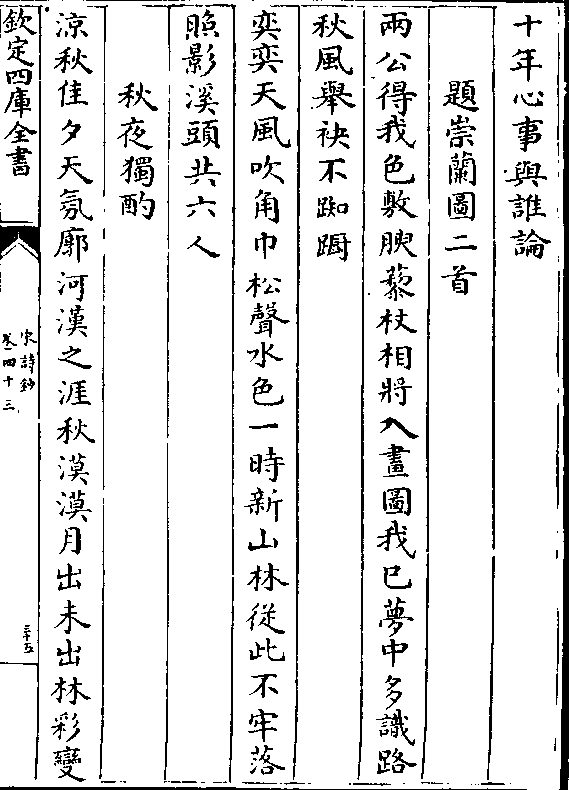 十年心事與誰論
題崇蘭圖二首
兩公得我色敷腴藜杖相將入畫圖我已夢中多識路
秋風舉袂不踟蹰
奕奕天風吹角巾松聲水色一時新山林從此不牢落
照影溪頭共六人
秋夜獨酌
涼秋佳夕天氛廓河漢之涯秋漠漠月出未出林彩變
欽定四庫全書
宋詩鈔
卷四十三
三十五